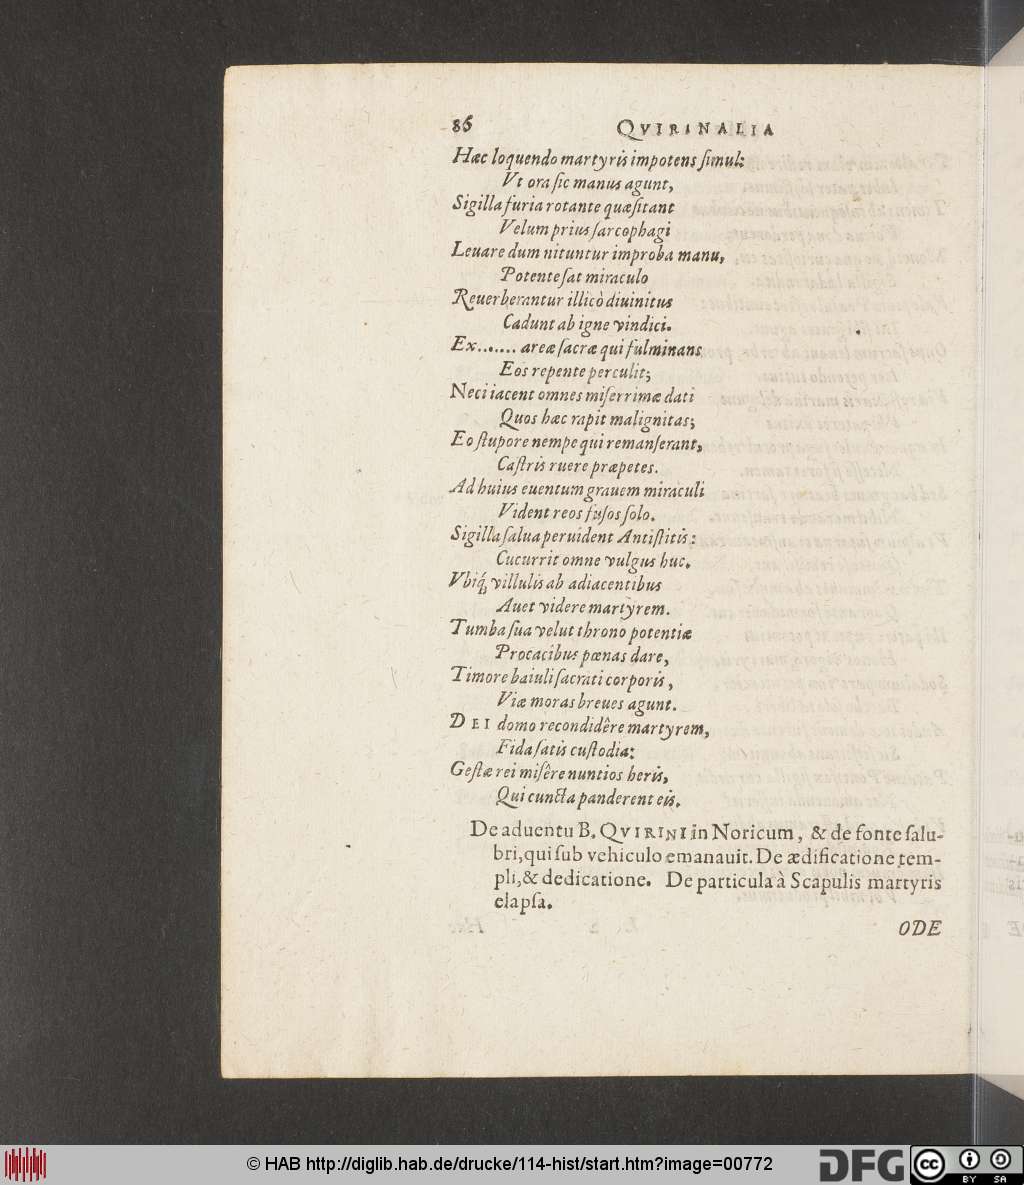 86 QVIRINALIA
Hæc loquendo martyris impotens ſimul:
Vt ora ſic manus agunt,
Sigilla furia rotante quæſitant
Velum prius ſarcophagi
Leuare dum nituntur improba manu,
Potente ſat miraculo
Reuerberantur illicò diuinitus
Cadunt ab igne vindici.
Ex....... areæ ſacræ qui fulminans
Eos repente perculit;
Neci iacent omnes miſerrimæ dati
Quos hæc rapit malignitas;
Eo ſtupore nempe qui remanſerant,
Caſtris ruere præpetes.
Ad huius euentum grauem miraculi
Vident reos fuſos ſolo.
Sigilla ſalua peruident Antiſtitis:
Cucurrit omne vulgus huc.
Vbiq́; villulis ab adiacentibus
Auet videre martyrem.
Tumba ſua velut throno potentiæ
Procacibus pœnas dare,
Timore baiuli ſacrati corporis,
Viæ moras breues agunt.
DEI domo recondidêre martyrem,
Fida ſatis cuſtodia:
Geſtæ rei miſêre nuntios heris,
Qui cuncta panderent eis.
De aduentu B. QVIRINI in Noricum, & de fonte ſalu-
bri, qui ſub vehiculo emanauit. De ædificatione tem-
pli, & dedicatione. De particula à Scapulis martyris
elapſa.
ODE
© HAB http://diglib.hab.de/drucke/114-hist/start.htm?image=00772
DFG
cc
BY SA